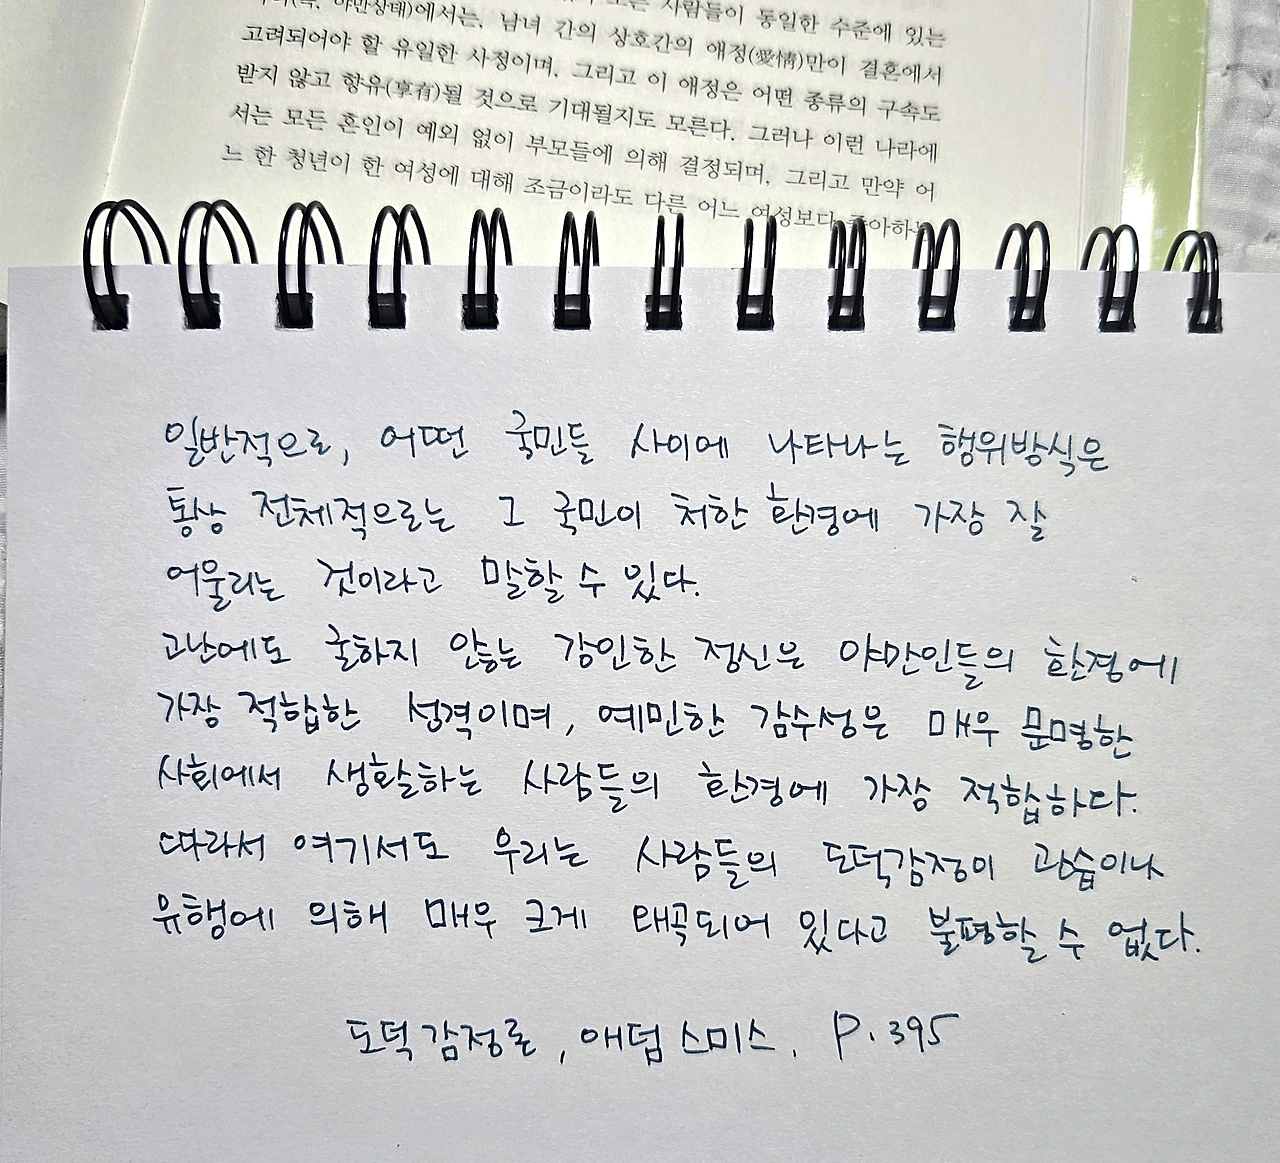 에서는, 남녀 간의 상호간의 애정(愛情)만이 결혼에서
사람들이 동일한 수준에 있는
고려되어야 할 유일한 사정이며, 그리고 이 애정은 어떤 종류의 구속도
받지 않고 향유(享有)될 것으로 기대될지도 모른다. 그러나 이런 나라에
서는 모든 혼인이 예외 없이 부모들에 의해 결정되며, 그리고 만약 어
느 한 청년이 한 여성에 대해 조금이라도 다른 어느 여성보다
일반적으로, 어떤 국민들 사이에 나타나는 행위방식은
통상 전체적으로는 그 국민이 처한 환경에 가장 잘
어울리는 것이라고 말할 수 있다.
고난에도 굴하지 않는 강인한 정신은 야만인들의 환경에
가장 적합한 성격이며, 예민한 감수성은 매우 문명한
사회에서 생활하는 사람들의 환경에 가장 적합하다.
따라서 여기서도 우리는 사람들의 도덕감정이 관습이나
유행에 의해 매우 크게 왜곡되어 있다고 불평할 수 없다.
도덕감정론, 애덤 스미스. P. 395